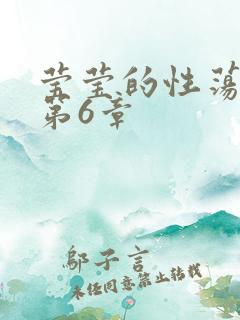 莹莹的性荡
第6章
邬子言
未经同意禁止转载